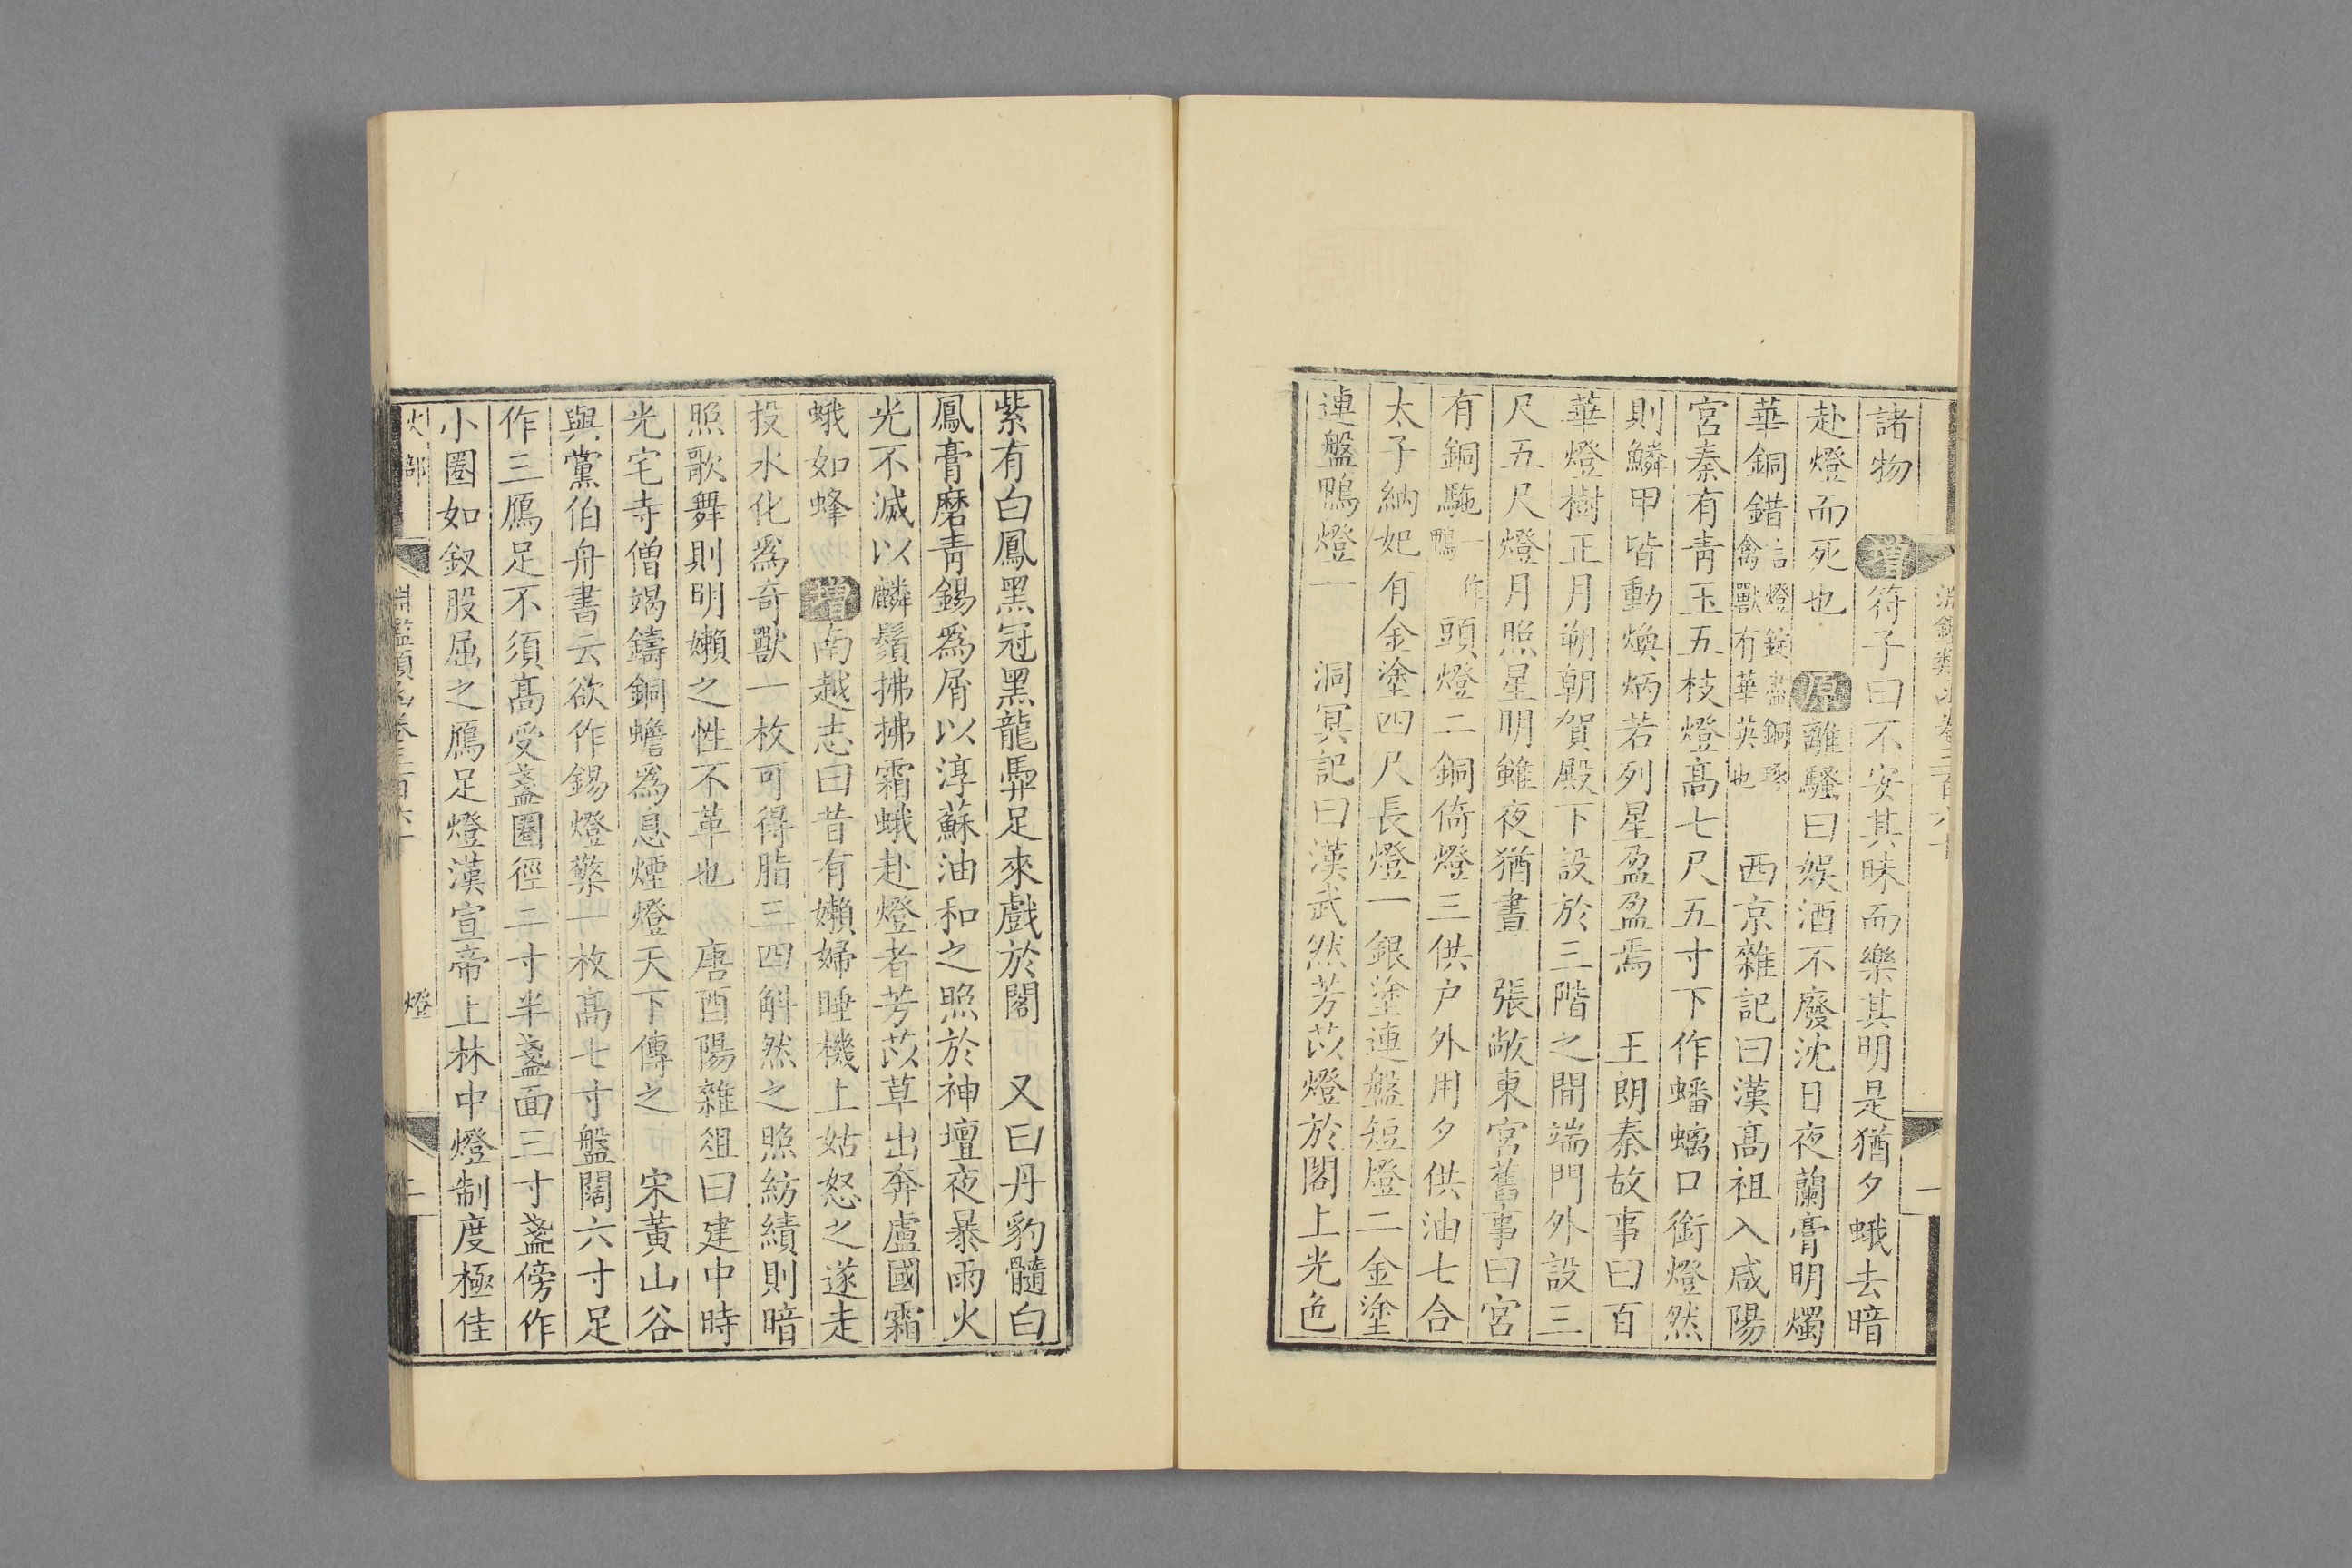 諸物 增 符子曰不安其昧而樂其明是猶夕蛾去暗
赴燈而死也 原 離騷曰娛酒不廢沈日夜蘭膏明燭
華銅錯 言燈錠盡銅琢禽獸有華英也 西京雜記曰漢高祖入咸陽
宮秦有靑玉五枝燈高七尺五寸下作蟠螭口銜燈然
則鱗甲皆動煥炳若列星盈盈焉 王朗秦故事曰百
華燈樹正月朔朝賀殿下設於三階之間端門外設三
尺五尺燈月照星明雖夜猶晝 張敞東宮舊事曰宮
有銅駞 一作鴨 頭燈二銅倚燈三供户外用夕供油七合
太子納妃有金塗四尺長燈一銀塗連盤短燈二金塗
連盤鴨燈一 洞冥記曰漢武然芳苡燈於閣上光色
紫有白鳳黑冠黑龍馵足來戲於閣 又曰丹豹髓白
鳳膏磨靑錫爲屑以淳蘇油和之照於神壇夜暴雨火
光不滅以麟鬚拂拂霜蛾赴燈者芳苡草出奔盧國霜
蛾如蜂 增 南越志曰昔有嬾婦睡機上姑怒之遂走
投水化爲奇獸一枚可得脂三四斛然之照紡績則暗
照歌舞則明嬾之性不革也 唐酉陽雜俎曰建中時
光宅寺僧竭鑄銅蟾爲息煙燈天下傳之 宋黃山谷
與黨伯舟書云欲作錫燈檠一枚高七寸盤闊六寸足
作三鴈足不須高受盞圈徑二寸半盞面三寸盞傍作
小圈如釵股屈之鴈足燈漢宣帝上林中燈制度極佳
火部 淵鑑類函卷三百六十 燈 二